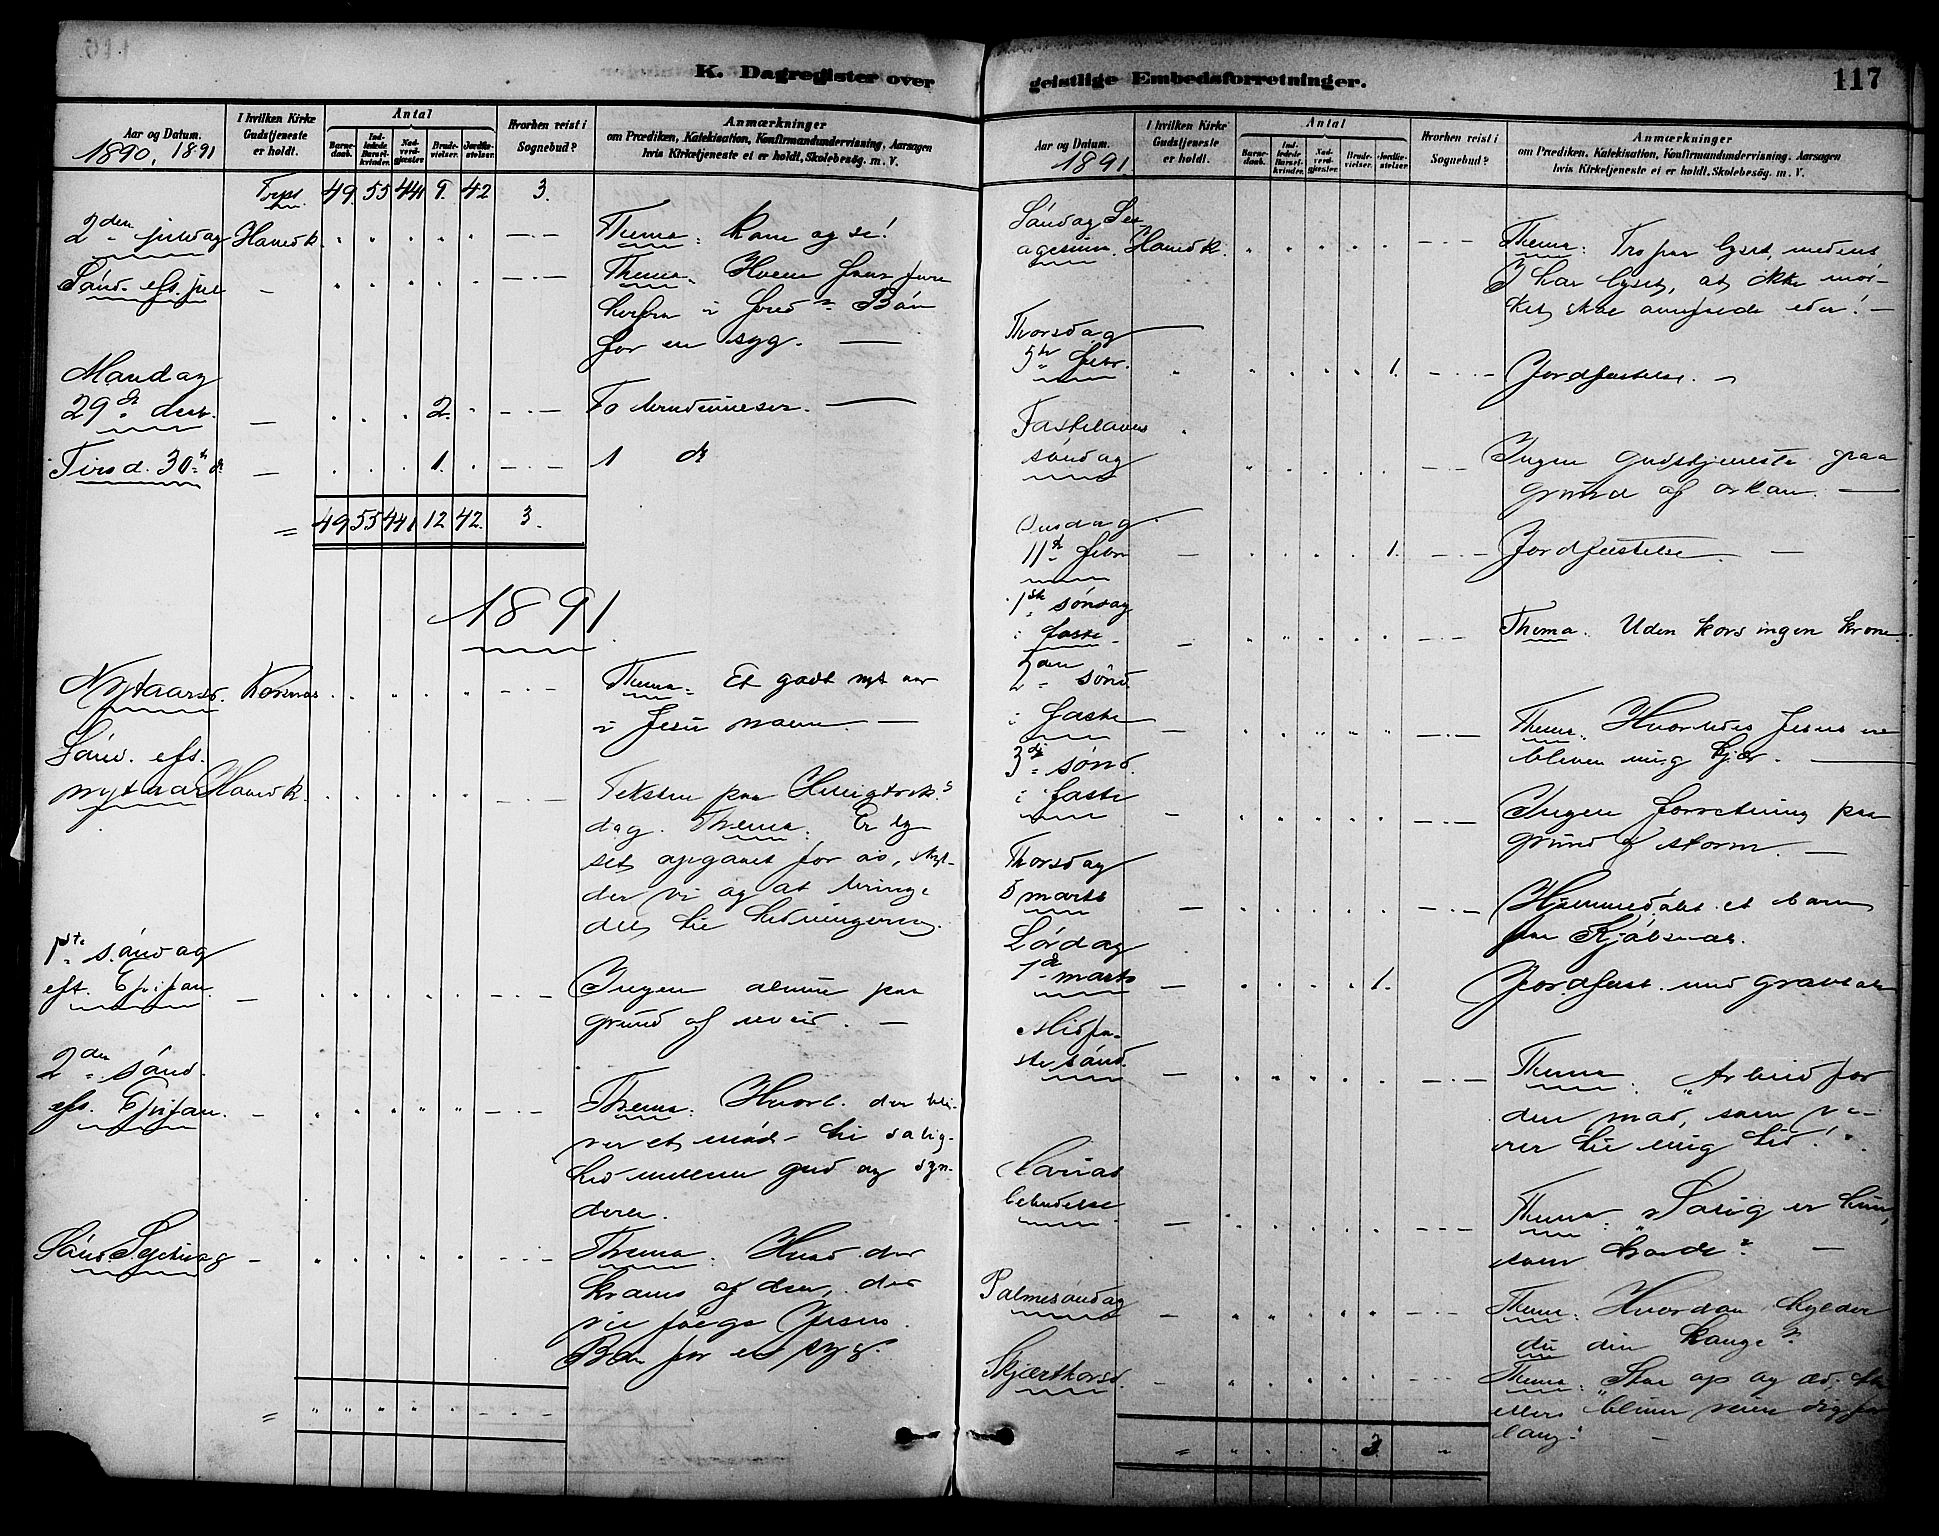 K. Dagregister over
Aar og Datum.
1890, 1891
I hvilken Kirke
Gudstjeneste
er holdt.
Antal
Barne-
daab.
Ind-
ledede
Barsel-
kvinder.
Nad-
verd-
gjæster.
Brude-
vielser.
Jordfæ-
stelser.
Hvorhen reist i
Sognebud?
Anmærkninger
om Prædiken, Katekisation, Konfirmandundervisning, Aarsagen
hvis Kirketjeneste ei er holdt, Skolebesøg. m. V.
Trpt. 49. 55 441 9. 42 3.
2den juledag Hovedk. Thema: Kom og se!
Sønd. eft. jul Thema:
Bøn
for en syg.
Mandag
29de decb. 2. To brudevielser.
Tirsd. 30te do 1. 1 do
= 49 55 441 12 42. 3.
1891.
Nytaarsd. Korsnæs Thema: Et godt nyt aar
i Jesu navn
Sønd. eft.
nytaar Hovedk. Teksten paa Helligtrek.s
dag. Thema: Er ly-
set opgaaet for os, skyl-
der vi og at bringe
det til hedningerne.
1ste søndag
eft. Epifan. Ingen almue paa
grund af uveir.
2den sønd.
eft. Epifan. Thema: Hvorl. der bli-
ver et møde til salig-
hed mellem gud og syn-
deren.
Sønd. Septuag Thema: Hvad der
kræves af den, der
vil følge Jesus.
Bøn for en syg.
=
geistlige Embedsforretninger.
117
Aar og Datum.
1891
I hvilken Kirke
Gudstjeneste
er holdt.
Antal
Barne-
daab.
Ind-
ledede
Barsel-
kvinder.
Nad-
verd-
gjæster.
Brude-
vielser.
Jordfæ-
stelser.
Hvorhen reist i
Sognebud?
Anmærkninger
om Prædiken, Katekisation, Konfirmandundervisning, Aarsagen
hvis Kirketjeneste ei er holdt, Skolebesøg. m. V.
Søndag Sex-
agesima. Hovedk. Thema: Tro paa lyset, medens
I har lyset, at ikke mør-
ket skal overfalde eder!
Thorsdag
5te febr. 1. Jordfæstelse.
Fastelavns
søndag Ingen gudstjeneste paa
grund af orkan.
Onsdag
11te febr 1. Jordfæstelse
1ste søndag
i faste Thema. Uden kors ingen krone.
2den sønd.
i faste Thema: Hvorledes Jesus er
bleven mig kjær.
3die sønd.
i faste Ingen forretning paa
grund af storm.
Thorsdag
5 marts Hjemmedøbt et barn
fra Kjølsnæs.
Lørdag
7de marts 1. Jordfæst. med gravtale
Midfa-
stesønd. Thema: "Arbeid for
den mad, som va-
rer til evig tid!"
Mariæ
bebudelse Thema: "Salig er hun,
som troede".
Palmesøndag Thema: Hvordan hylder
du din konge?
Skjærthorsd. Thema: "Staa op og æd,
ellers bliver veien dig for
lang."
= 3.